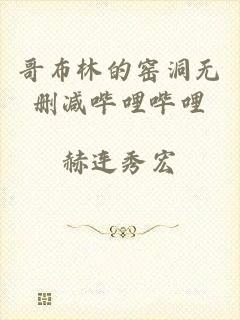 哥布林的窑洞无
删减哔哩哔哩
赫连秀宏